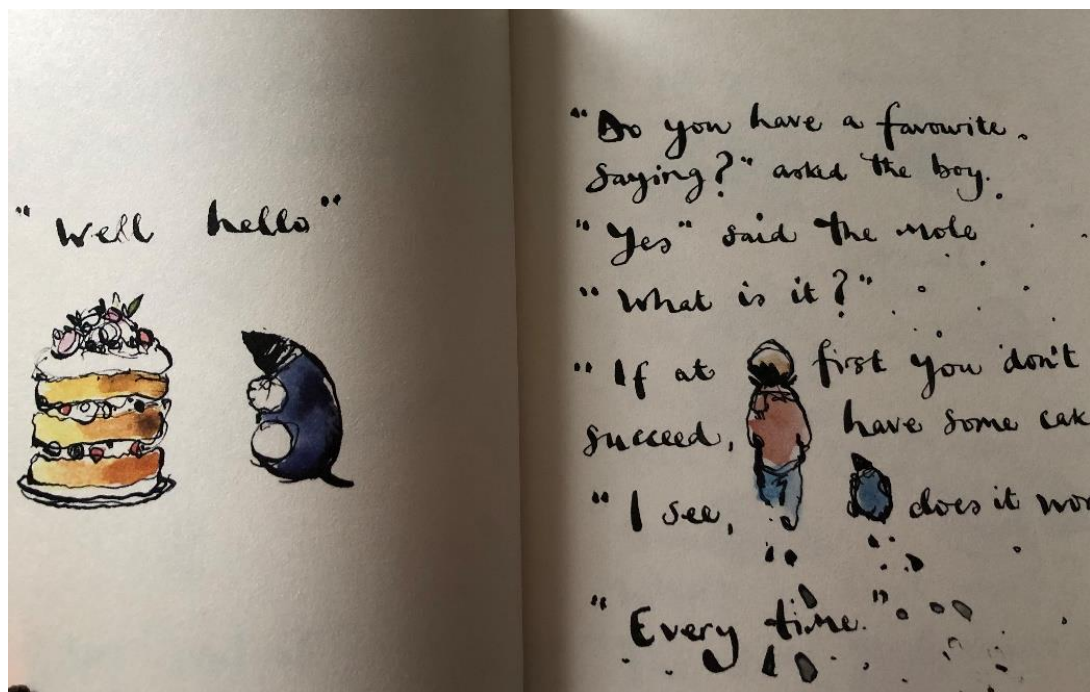 "Well hello"
"Do you have a favourite
saying?" asked the boy.
"Yes" said the mole
"What is it?"
"If at first you don't
succeed, have some cak
"I see, does it wor
"Every time."